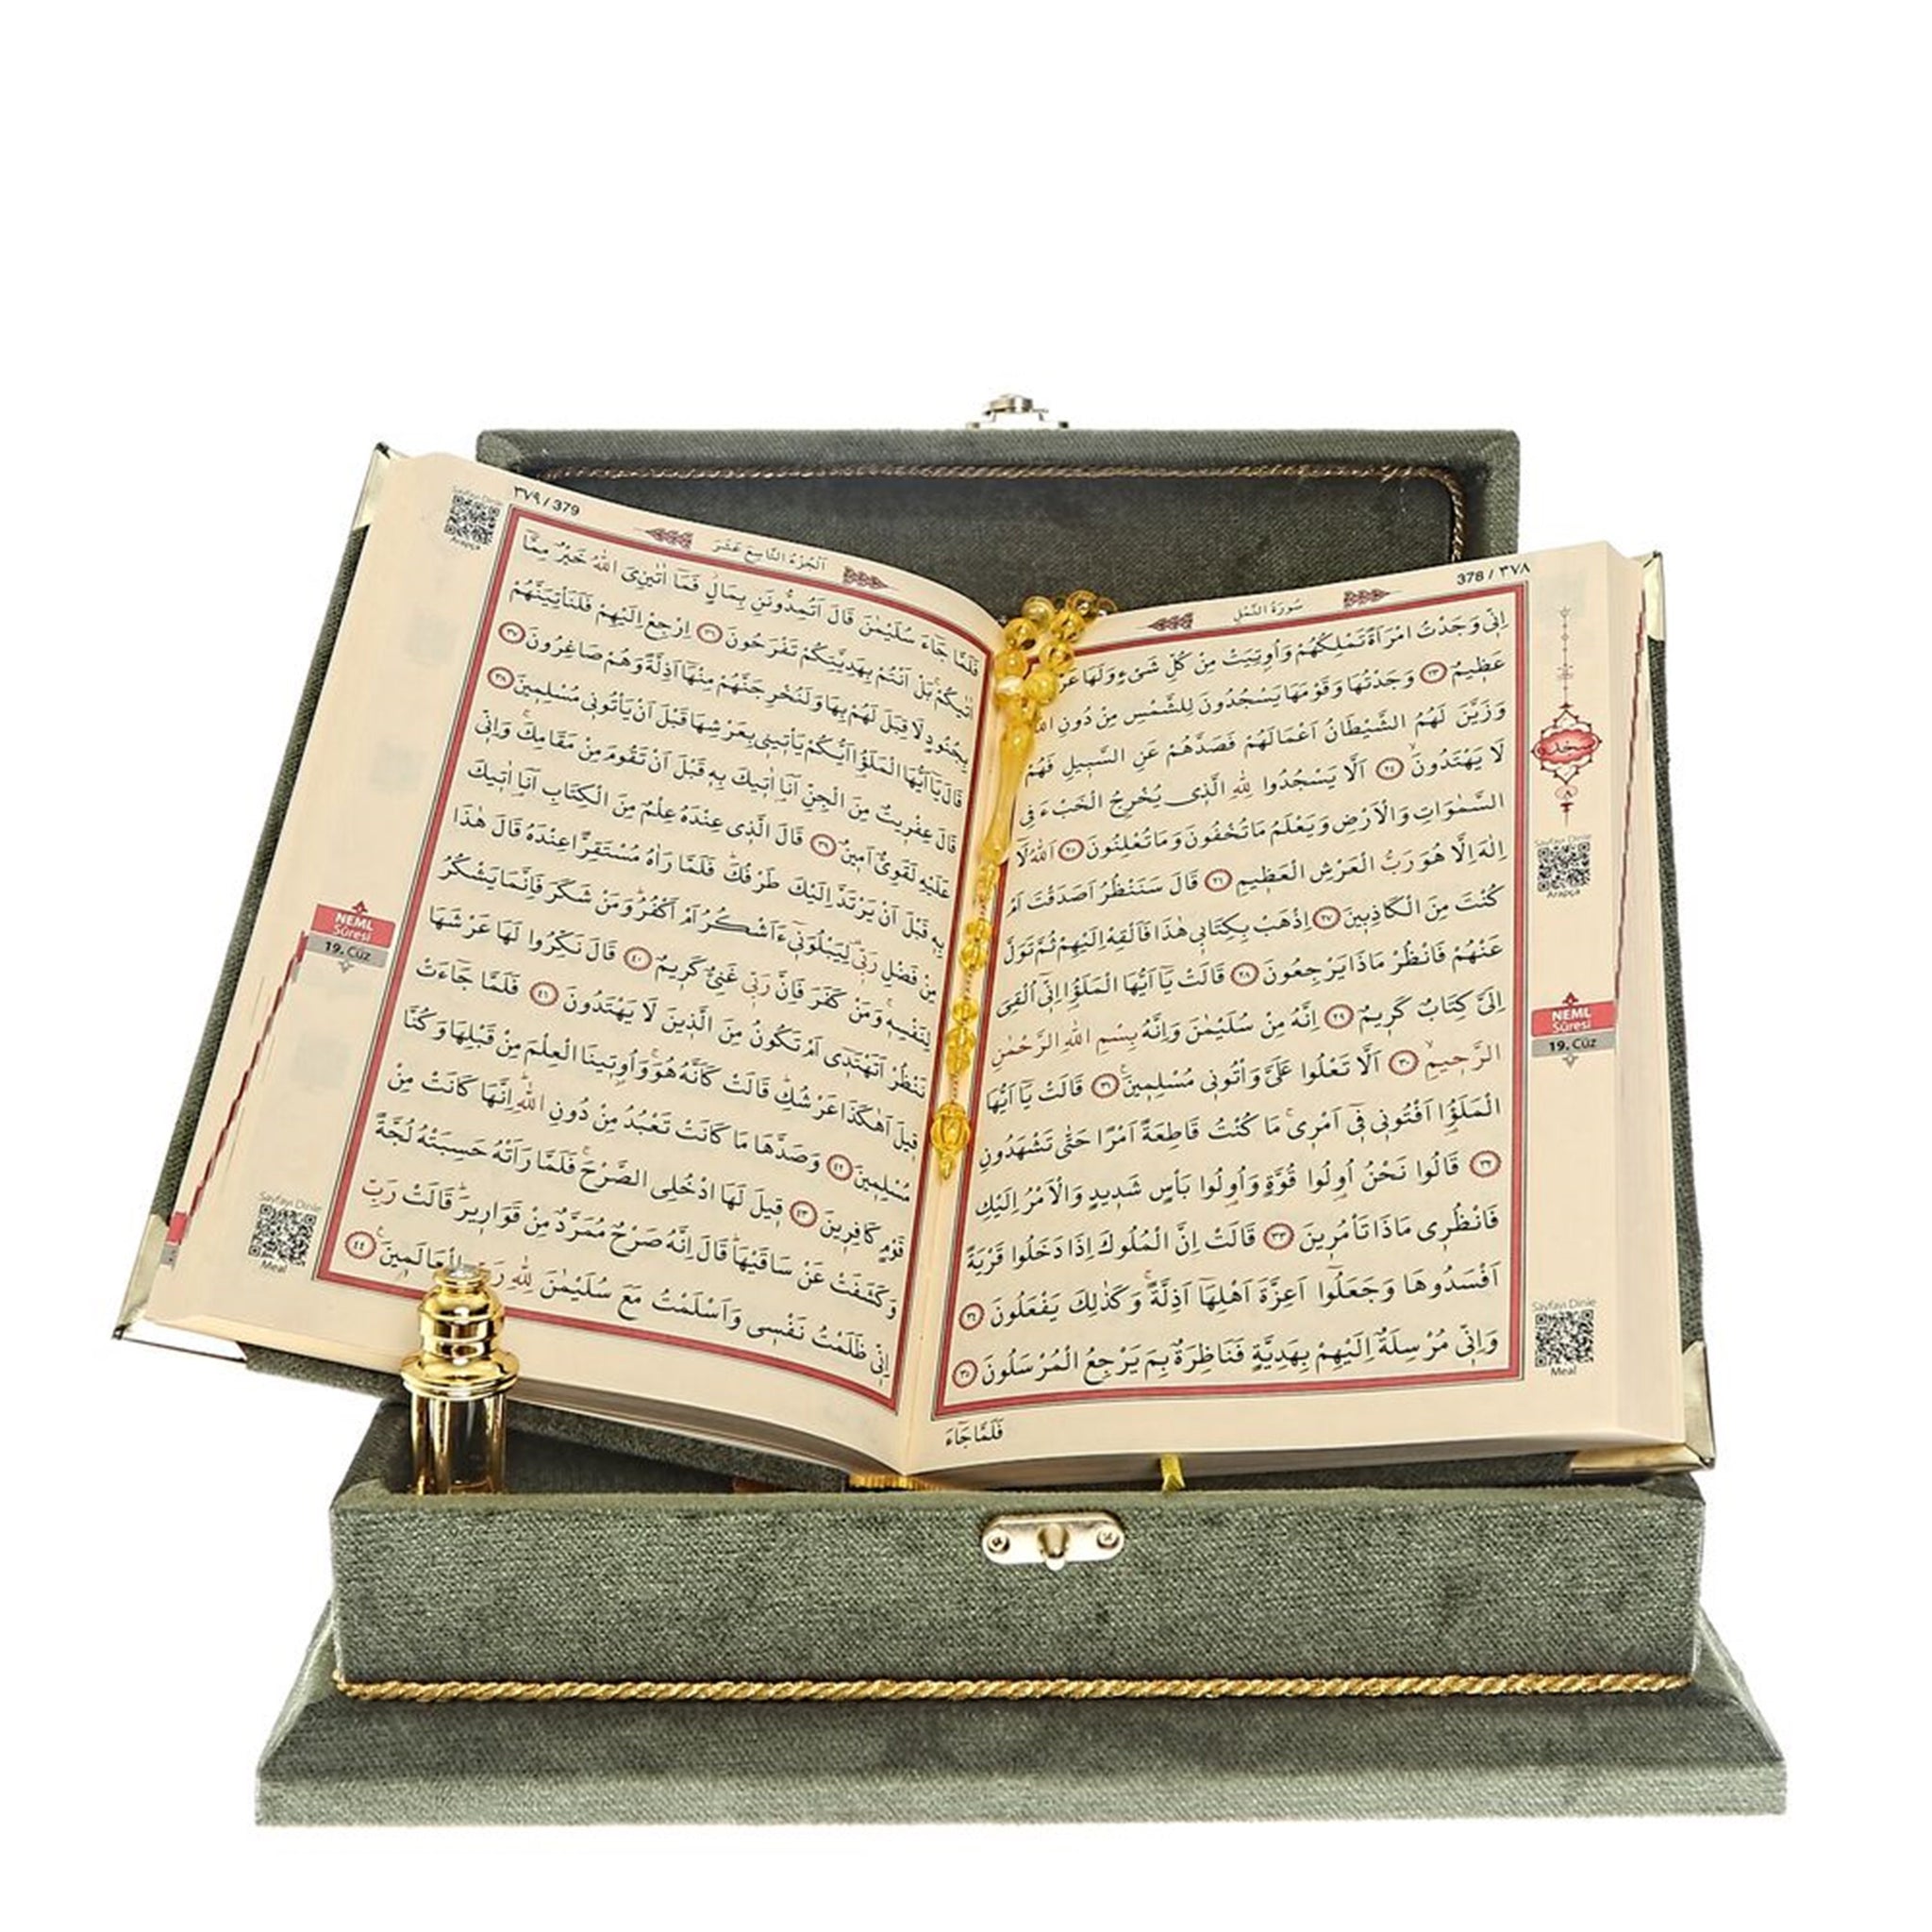 378 / ٣٧٨
سُورَةُ النَّمْلِ
اِنّ۪ي وَجَدْتُ امْرَاَةً تَمْلِكُهُمْ وَاُو۫تِيَتْ مِنْ كُلِّ شَيْءٍ وَلَهَا
عَظ۪يمٌ ٢٣ وَجَدْتُهَا وَقَوْمَهَا يَسْجُدُونَ لِلشَّمْسِ مِنْ دُونِ
وَزَيَّنَ لَهُمُ الشَّيْطَانُ اَعْمَالَهُمْ فَصَدَّهُمْ عَنِ السَّب۪يلِ فَهُمْ
لَا يَهْتَدُونَۙ ٢٤ اَلَّا يَسْجُدُوا لِلّٰهِ الَّذ۪ي يُخْرِجُ الْخَبْءَ فِي
السَّمٰوَاتِ وَالْاَرْضِ وَيَعْلَمُ مَا تُخْفُونَ وَمَا تُعْلِنُونَ ٢٥ اَللّٰهُ لَٓا
اِلٰهَ اِلَّا هُوَ رَبُّ الْعَرْشِ الْعَظ۪يمِ ٢٦ قَالَ سَنَنْظُرُ اَصَدَقْتَ اَمْ
كُنْتَ مِنَ الْكَاذِب۪ينَ ٢٧ اِذْهَبْ بِكِتَاب۪ي هٰذَا فَاَلْقِهْ اِلَيْهِمْ ثُمَّ تَوَلَّ
عَنْهُمْ فَانْظُرْ مَاذَا يَرْجِعُونَ ٢٨ قَالَتْ يَٓا اَيُّهَا الْمَلَؤُ۬ا اِنّ۪ٓي اُلْقِيَ
اِلَيَّ كِتَابٌ كَر۪يمٌ ٢٩ اِنَّهُ مِنْ سُلَيْمٰنَ وَاِنَّهُ بِسْمِ اللّٰهِ الرَّحْمٰنِ
الرَّح۪يمِۙ ٣٠ اَلَّا تَعْلُوا عَلَيَّ وَأْتُون۪ي مُسْلِم۪ينَ۟ ٣١ قَالَتْ يَٓا اَيُّهَا
الْمَلَؤُ۬ا اَفْتُون۪ي ف۪ٓي اَمْر۪يۚ مَا كُنْتُ قَاطِعَةً اَمْرًا حَتّٰى تَشْهَدُونِ
٣٢ قَالُوا نَحْنُ اُو۬لُوا قُوَّةٍ وَاُو۬لُوا بَأْسٍ شَد۪يدٍ وَالْاَمْرُ اِلَيْكِ
فَانْظُر۪ي مَاذَا تَأْمُر۪ينَ ٣٣ قَالَتْ اِنَّ الْمُلُوكَ اِذَا دَخَلُوا قَرْيَةً
اَفْسَدُوهَا وَجَعَلُٓوا اَعِزَّةَ اَهْلِهَٓا اَذِلَّةًۚ وَكَذٰلِكَ يَفْعَلُونَ ٣٤
وَاِنّ۪ي مُرْسِلَةٌ اِلَيْهِمْ بِهَدِيَّةٍ فَنَاظِرَةٌ بِمَ يَرْجِعُ الْمُرْسَلُونَ ٣٥
فَلَمَّا جَٓاءَ
سجده
٨
Sayfayı Dinle
Arapça
NEML
Sûresi
19. Cüz
Sayfayı Dinle
Meal
٣٧٩ / 379
اَلْجُزْءُ التَّاسِعَ عَشَرَ
فَلَمَّا جَٓاءَ سُلَيْمٰنَ قَالَ اَتُمِدُّونَنِ بِمَالٍۘ فَمَٓا اٰتٰينِ‌يَ اللّٰهُ خَيْرٌ مِمَّٓا
اٰتٰيكُمْۚ بَلْ اَنْتُمْ بِهَدِيَّتِكُمْ تَفْرَحُونَ ٣٦ اِرْجِعْ اِلَيْهِمْ فَلَنَأْتِيَنَّهُمْ
بِجُنُودٍ لَا قِبَلَ لَهُمْ بِهَا وَلَنُخْرِجَنَّهُمْ مِنْهَٓا اَذِلَّةً وَهُمْ صَاغِرُونَ ٣٧
قَالَ يَٓا اَيُّهَا الْمَلَؤُ۬ا اَيُّكُمْ يَأْت۪ين۪ي بِعَرْشِهَا قَبْلَ اَنْ يَأْتُون۪ي مُسْلِم۪ينَ ٣٨
قَالَ عِفْر۪يتٌ مِنَ الْجِنِّ اَنَا۬ اٰت۪يكَ بِه۪ قَبْلَ اَنْ تَقُومَ مِنْ مَقَامِكَۚ وَاِنّ۪ي
عَلَيْهِ لَقَوِيٌّ اَم۪ينٌ ٣٩ قَالَ الَّذ۪ي عِنْدَهُ عِلْمٌ مِنَ الْكِتَابِ اَنَا۬ اٰت۪يكَ
بِه۪ قَبْلَ اَنْ يَرْتَدَّ اِلَيْكَ طَرْفُكَۜ فَلَمَّا رَاٰهُ مُسْتَقِرًّا عِنْدَهُ قَالَ هٰذَا
مِنْ فَضْلِ رَبّ۪ي لِيَبْلُوَن۪ٓي ءَاَشْكُرُ اَمْ اَكْفُرُۜ وَمَنْ شَكَرَ فَاِنَّمَا يَشْكُرُ
لِنَفْسِه۪ۚ وَمَنْ كَفَرَ فَاِنَّ رَبّ۪ي غَنِيٌّ كَر۪يمٌ ٤٠ قَالَ نَكِّرُوا لَهَا عَرْشَهَا
نَنْظُرْ اَتَهْتَد۪ٓي اَمْ تَكُونُ مِنَ الَّذ۪ينَ لَا يَهْتَدُونَ ٤١ فَلَمَّا جَٓاءَتْ
ق۪يلَ اَهٰكَذَا عَرْشُكِۜ قَالَتْ كَاَنَّهُ هُوَۚ وَاُو۫ت۪ينَا الْعِلْمَ مِنْ قَبْلِهَا وَكُنَّا
مُسْلِم۪ينَ ٤٢ وَصَدَّهَا مَا كَانَتْ تَعْبُدُ مِنْ دُونِ اللّٰهِۜ اِنَّهَا كَانَتْ مِنْ
قَوْمٍ كَافِر۪ينَ ٤٣ ق۪يلَ لَهَا ادْخُلِي الصَّرْحَۚ فَلَمَّا رَاَتْهُ حَسِبَتْهُ لُجَّةً
وَكَشَفَتْ عَنْ سَاقَيْهَاۜ قَالَ اِنَّهُ صَرْحٌ مُمَرَّدٌ مِنْ قَوَار۪يرَۜ قَالَتْ رَبِّ
اِنّ۪ي ظَلَمْتُ نَفْس۪ي وَاَسْلَمْتُ مَعَ سُلَيْمٰنَ لِلّٰهِ رَبِّ الْعَالَم۪ينَ۟ ٤٤
Sayfayı Dinle
Arapça
NEML
Sûresi
19. Cüz
Sayfayı Dinle
Meal